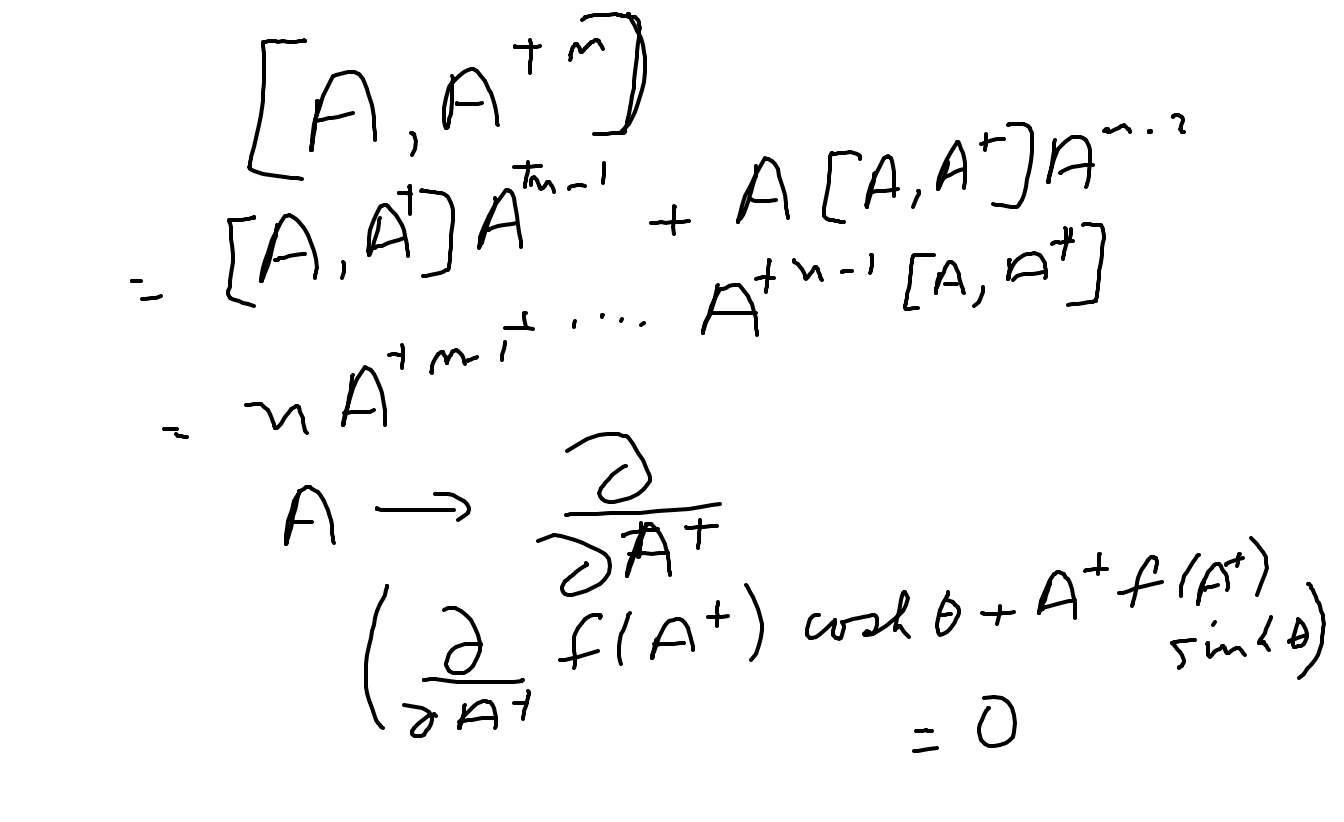 [A, A^{+ n}]
= [A, A^+] A^{+n-1} + A [A, A^+] A^{n-2}
+ .... A^{+ n-1} [A, A^+]
= n A^{+ n-1}
A → ∂/∂A^+
(∂/∂A^+ f(A^+) cosh θ + A^+ f(A^+) sinh θ)
= 0